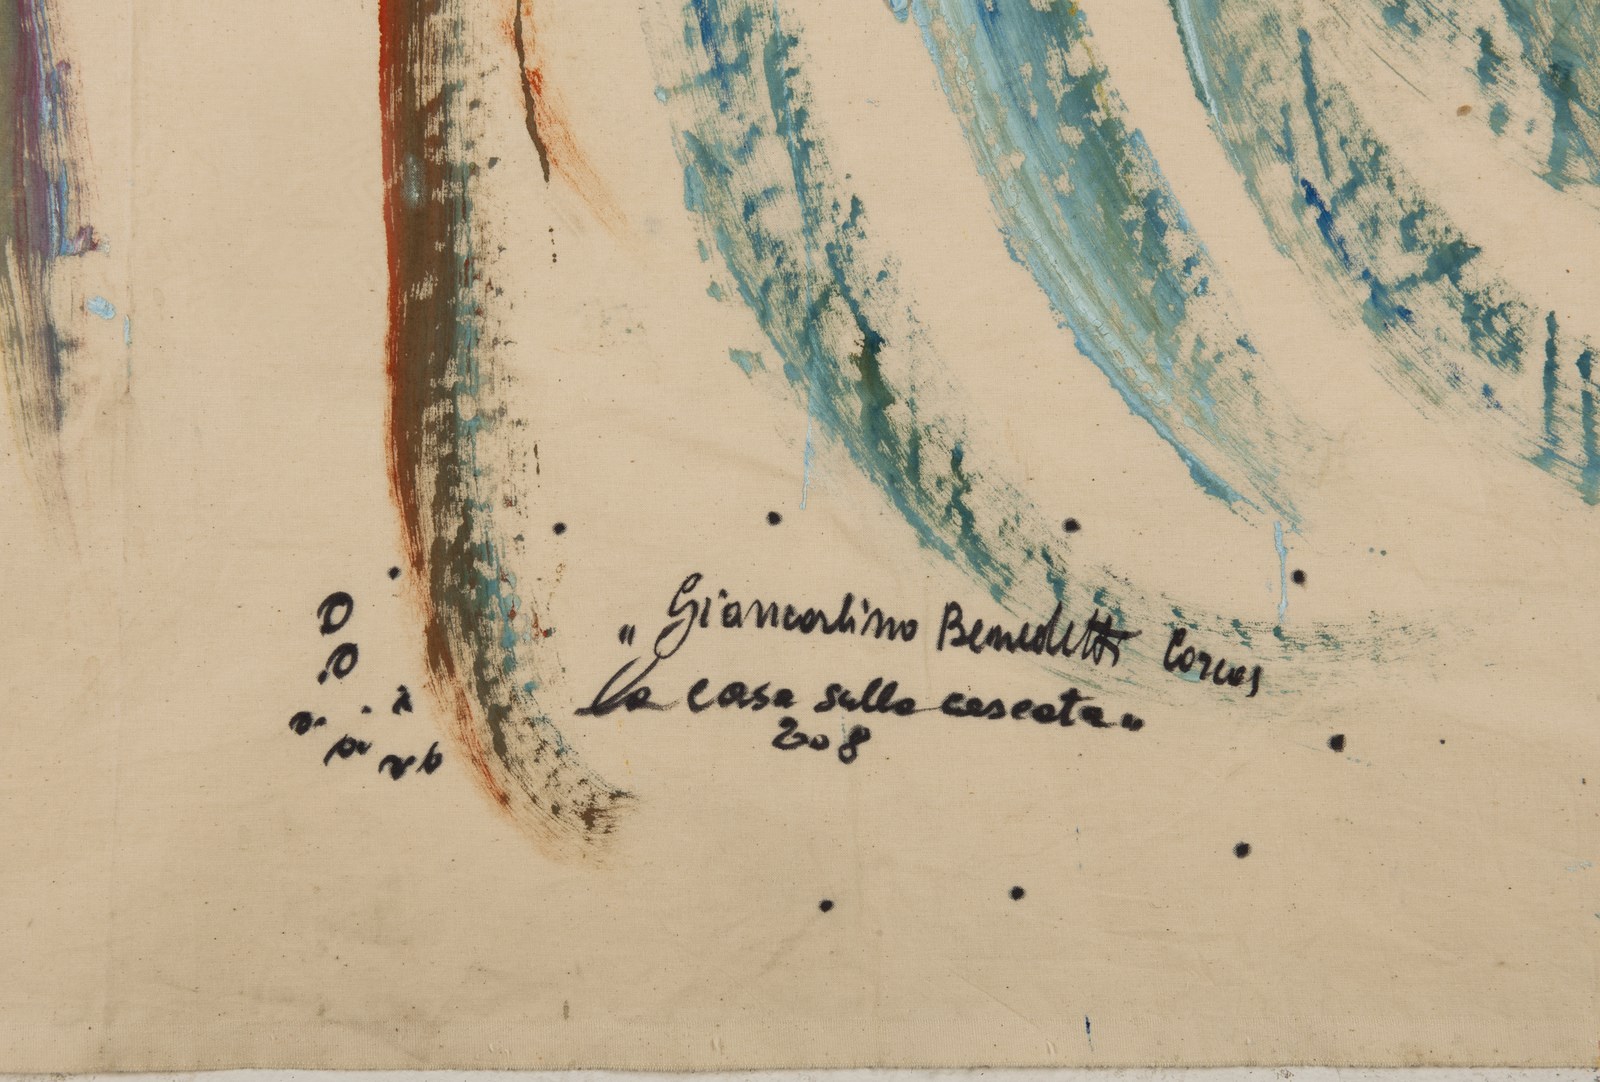 " Giancarlino Benedetti Corcos
la casa sulla cascata "
2008